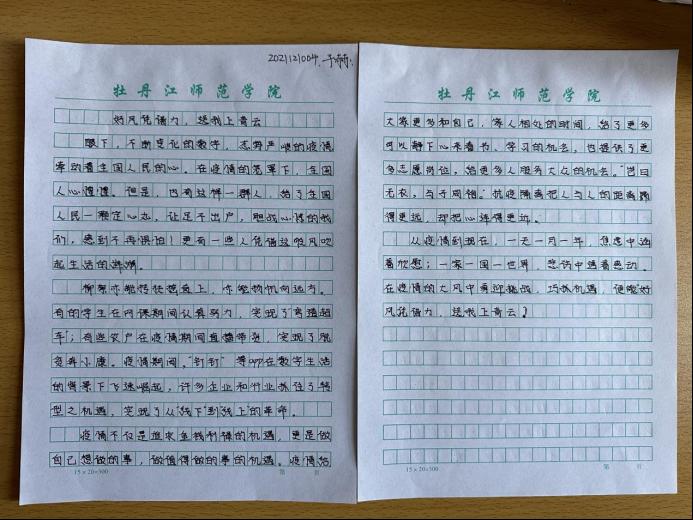 2021121004
牡丹江师范学院
好风凭借力,送我上青云
眼下,不断变化的数字,态势严峻的疫情
牵动着全国人民的心。在疫情的笼罩下,全国
人心惶惶。但是,也有这样一群人,给了全国
人民一颗定心丸,让足不出户,胆战心惊的我
们,感到不再惧怕!更有一些人凭借这股风吹
起生活的
柳絮亦能
有的学生在网课期间认真努力,实现了"弯道超
车";有些农户在疫情期间直播带货,实现了脱
贫奔小康。疫情期间,"钉钉"等app在数字生活
的背景下飞速崛起,许多企业和行业抓住了转
型之机遇,实现了从"线下"到"线上"的革命。
疫情不仅是追求金钱利禄的机遇,更是做
自己想做的事,做值得做的事的机遇。疫情给
15×20=300
第 页
牡丹江师范学院
大家更多和自己,家人相处的时间,给了更多
可以静下心来看书、学习的机会,也提供了更
多志愿岗位,给更多人服务大众的机会。"岂曰
无衣,与子同袍。"抗疫隔离把人与人的距离隔
得更远,却把心连得更近。
从疫情到现在,一天一月一年,焦虑中透
着欣慰;一家一国一世界,悲伤中透着感动。
在疫情的大风中勇迎挑战,巧抓机遇,便能"好
风凭借力,送我上青云"
15×20=300
第 页